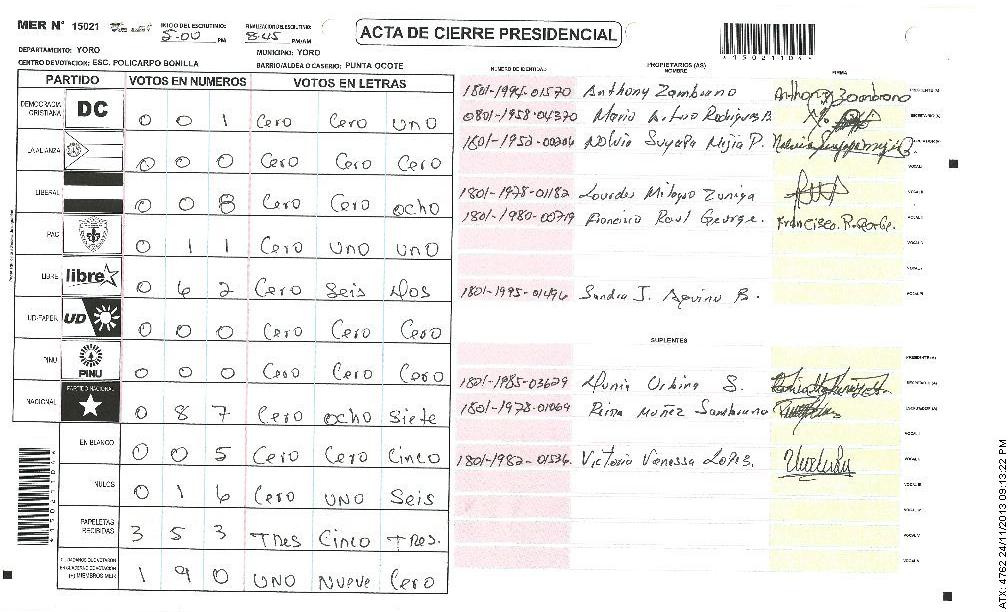 MER N° 15021 INICIO DEL ESCRUTINIO: 5:00 PM FINALIZACION DEL ESCRUTINIO: 8:45 PM/AM
ACTA DE CIERRE PRESIDENCIAL
*15021104*
DEPARTAMENTO: YORO MUNICIPIO: YORO
CENTRO DE VOTACION: ESC. POLICARPO BONILLA BARRIO/ALDEA O CASERIO: PUNTA OCOTE
PARTIDO VOTOS EN NUMEROS VOTOS EN LETRAS
DEMOCRACIA CRISTIANA DC 0 0 1 Cero Cero UNO
LA ALIANZA 0 0 0 Cero Cero Cero
LIBERAL 0 0 8 Cero Cero ocho
PAC 0 1 1 Cero UNO UNO
LIBRE libre 0 6 2 Cero Seis Dos
UD-FAPER UD 0 0 0 Cero Cero Cero
PINU PINU 0 0 0 Cero Cero Cero
NACIONAL PARTIDO NACIONAL 0 8 7 Cero ocho Siete
EN BLANCO 0 0 5 Cero Cero Cinco
NULOS 0 1 6 Cero UNO Seis
PAPELETAS RECIBIDAS 3 5 3 Tres Cinco Tres.
(+) MIEMBROS MER 1 9 0 UNO Nueve Cero
*15021104*
NUMERO DE IDENTIDAD PROPIETARIOS (AS) NOMBRE FIRMA
1801-1994-01570 Anthony Zambrano Anthony Zambrano PRESIDENTE (A)
0801-1958-04370 Mario Arturo Rodriguez B SECRETARIO (A)
1801-1952-00206 Nolvia Suyapa Mejia P. ESCRUTADOR (A)
VOCAL I
1801-1978-01182 Lourdes Milagro Zuniga VOCAL II
1801-1980-00719 Francisco Raul George. Francisco. R. George. VOCAL III
1801-1995-01496 Sandra J. Aquino B.
SUPLENTES
PRESIDENTE (A)
1801-1985-03629 Dunia Urbina S. SECRETARIO (A)
1801-1978-01069 Reina Muñez Sambrano ESCRUTADOR (A)
VOCAL I
1801-1982-01536. Victoria Vanessa Lopez. VOCAL II
VOCAL III
VOCAL IV
VOCAL V
ATX: 4762 24/11/2013 09:13:22 PM